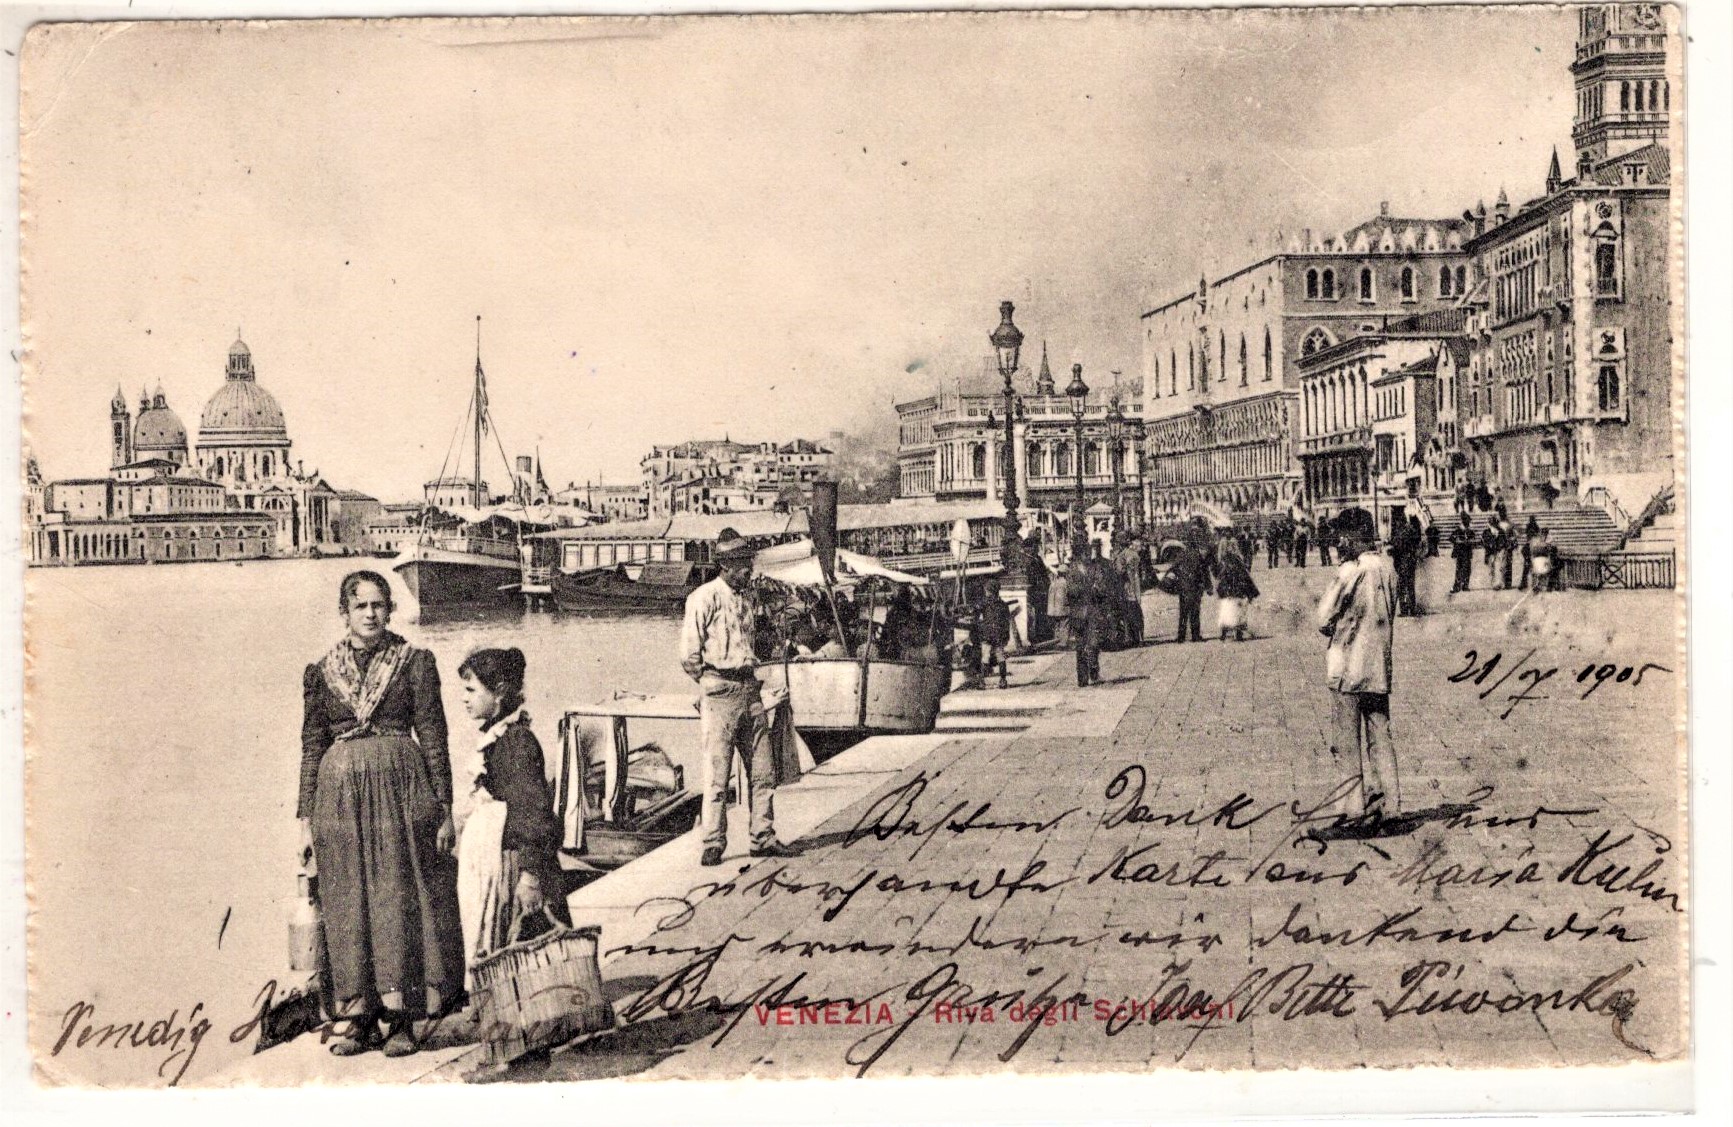 21/7 1905
Besten Dank für uns
übersandte Karte aus Maria Kulm
und erwiedern wir dankend die
Besten Grüße Josef Bette
Venedig
VENEZIA - Riva degli Schiavoni